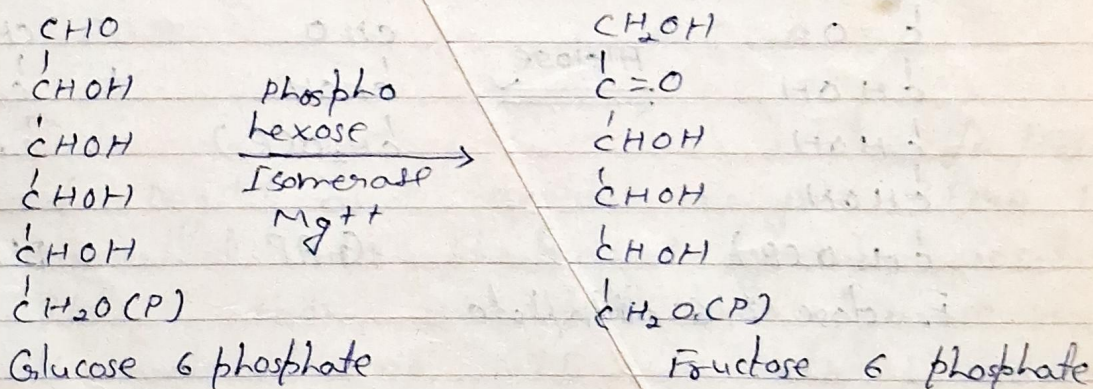 CHO
CHOH
CHOH
CHOH
CHOH
CH₂O(P)
Glucose 6 phosphate
phospho
hexose
Isomerase
Mg++
CH₂OH
C=O
CHOH
CHOH
CHOH
CH₂O(P)
Fructose 6 phosphate